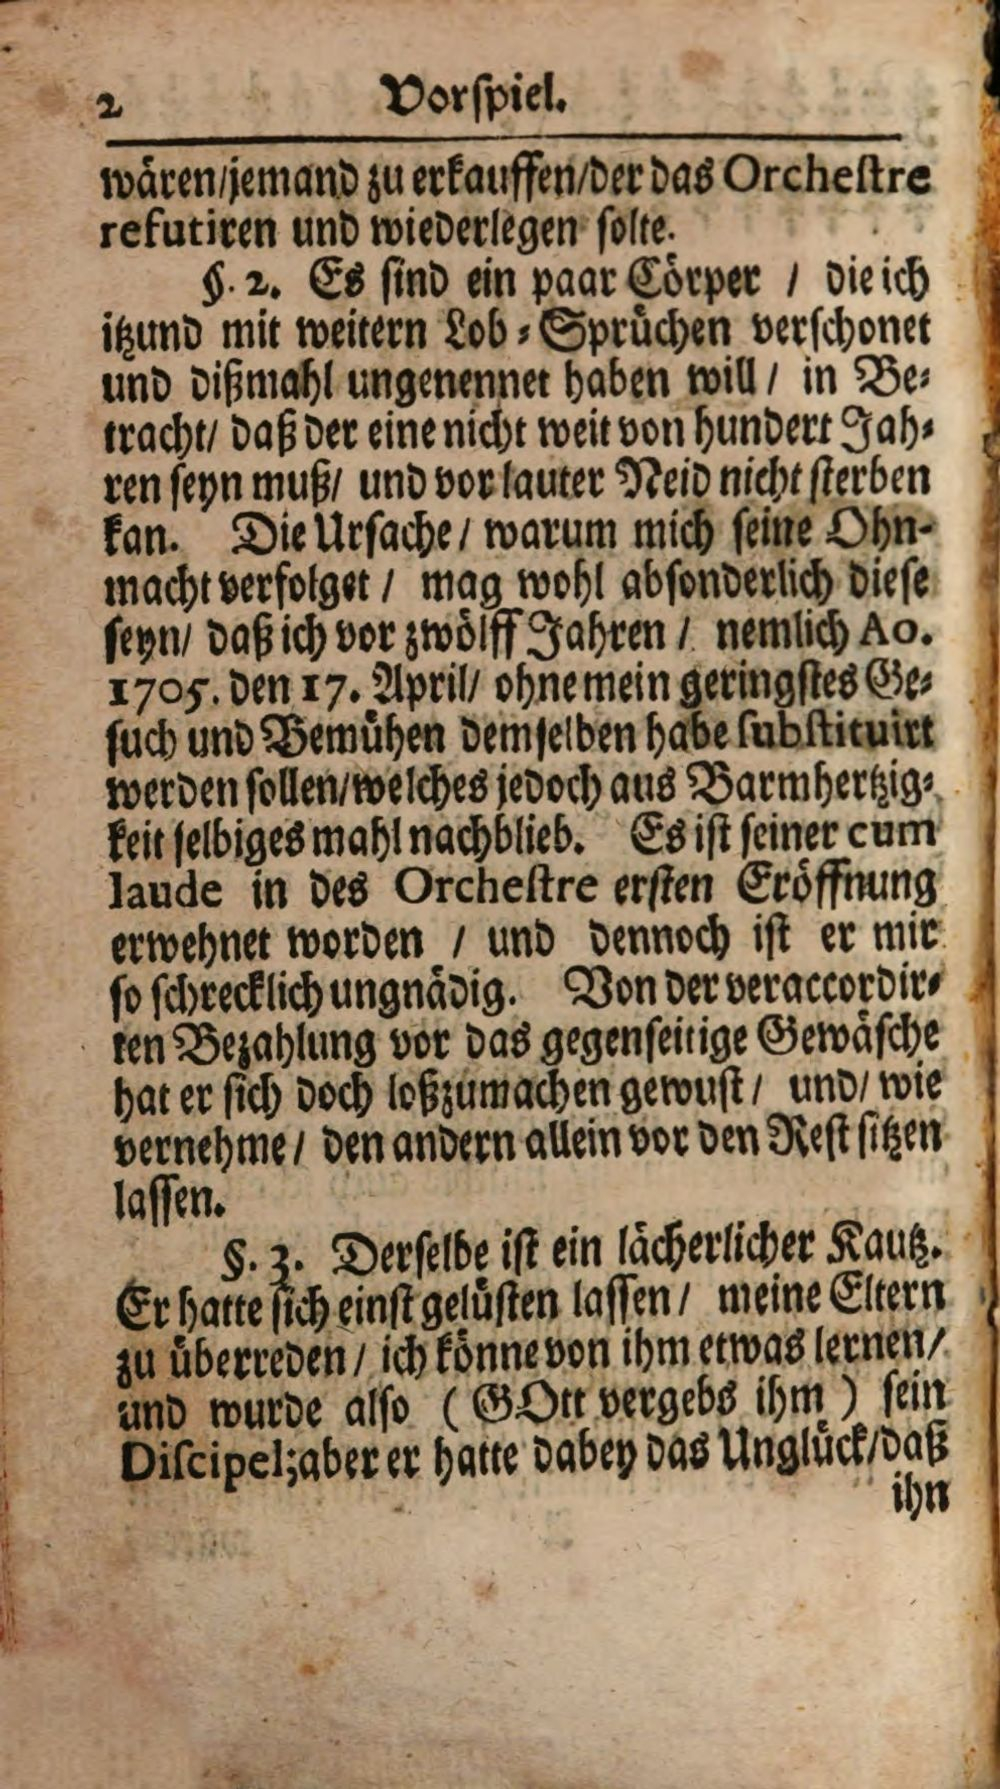 2 Vorſpiel.
wären/jemand zu erkauffen/der das Orcheſtre
refutiren und wiederlegen ſolte.
§. 2. Es ſind ein paar Cörper / die ich
itzund mit weitern Lob⸗Sprüchen verſchonet
und dißmahl ungenennet haben will / in Be⸗
tracht/ daß der eine nicht weit von hundert Jah⸗
ren ſeyn muß/ und vor lauter Neid nicht ſterben
kan. Die Urſache / warum mich ſeine Ohn-
macht verfolget / mag wohl abſonderlich dieſe
ſeyn/ daß ich vor zwölff Jahren / nemlich Ao.
1705. den 17. April/ ohne mein geringſtes Ge⸗
ſuch und Bemühen demſelben habe ſubſtituirt
werden ſollen/welches jedoch aus Barmhertzig⸗
keit ſelbiges mahl nachblieb. Es iſt ſeiner cum
laude in des Orcheſtre erſten Eröffnung
erwehnet worden / und dennoch iſt er mir
ſo ſchrecklich ungnädig. Von der veraccordir⸗
ten Bezahlung vor das gegenſeitige Gewäſche
hat er ſich doch loßzumachen gewuſt / und/ wie
vernehme / den andern allein vor den Reſt ſitzen
laſſen.
§. 3. Derſelbe iſt ein lächerlicher Kautz.
Er hatte ſich einſt gelüſten laſſen / meine Eltern
zu überreden / ich könne von ihm etwas lernen/
und wurde alſo ( GOtt vergebs ihm ) ſein
Diſcipel;aber er hatte dabey das Unglück/daß
ihn